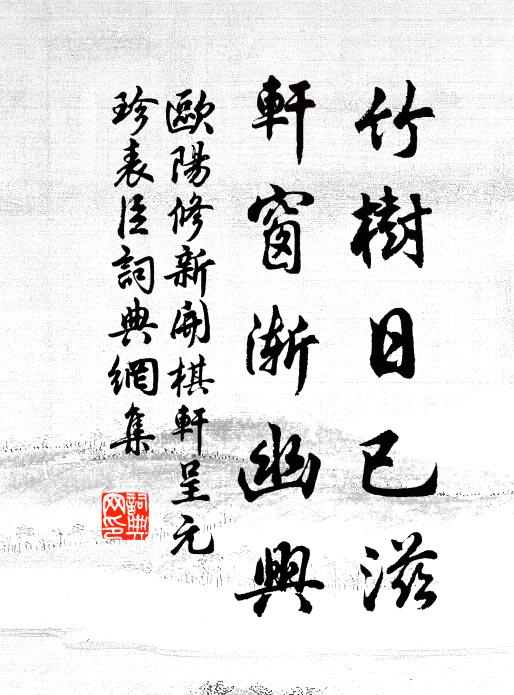 竹樹日已滋
軒窗漸幽興
歐陽修新開棋軒呈元
珍表臣詞典網集
詞典網印